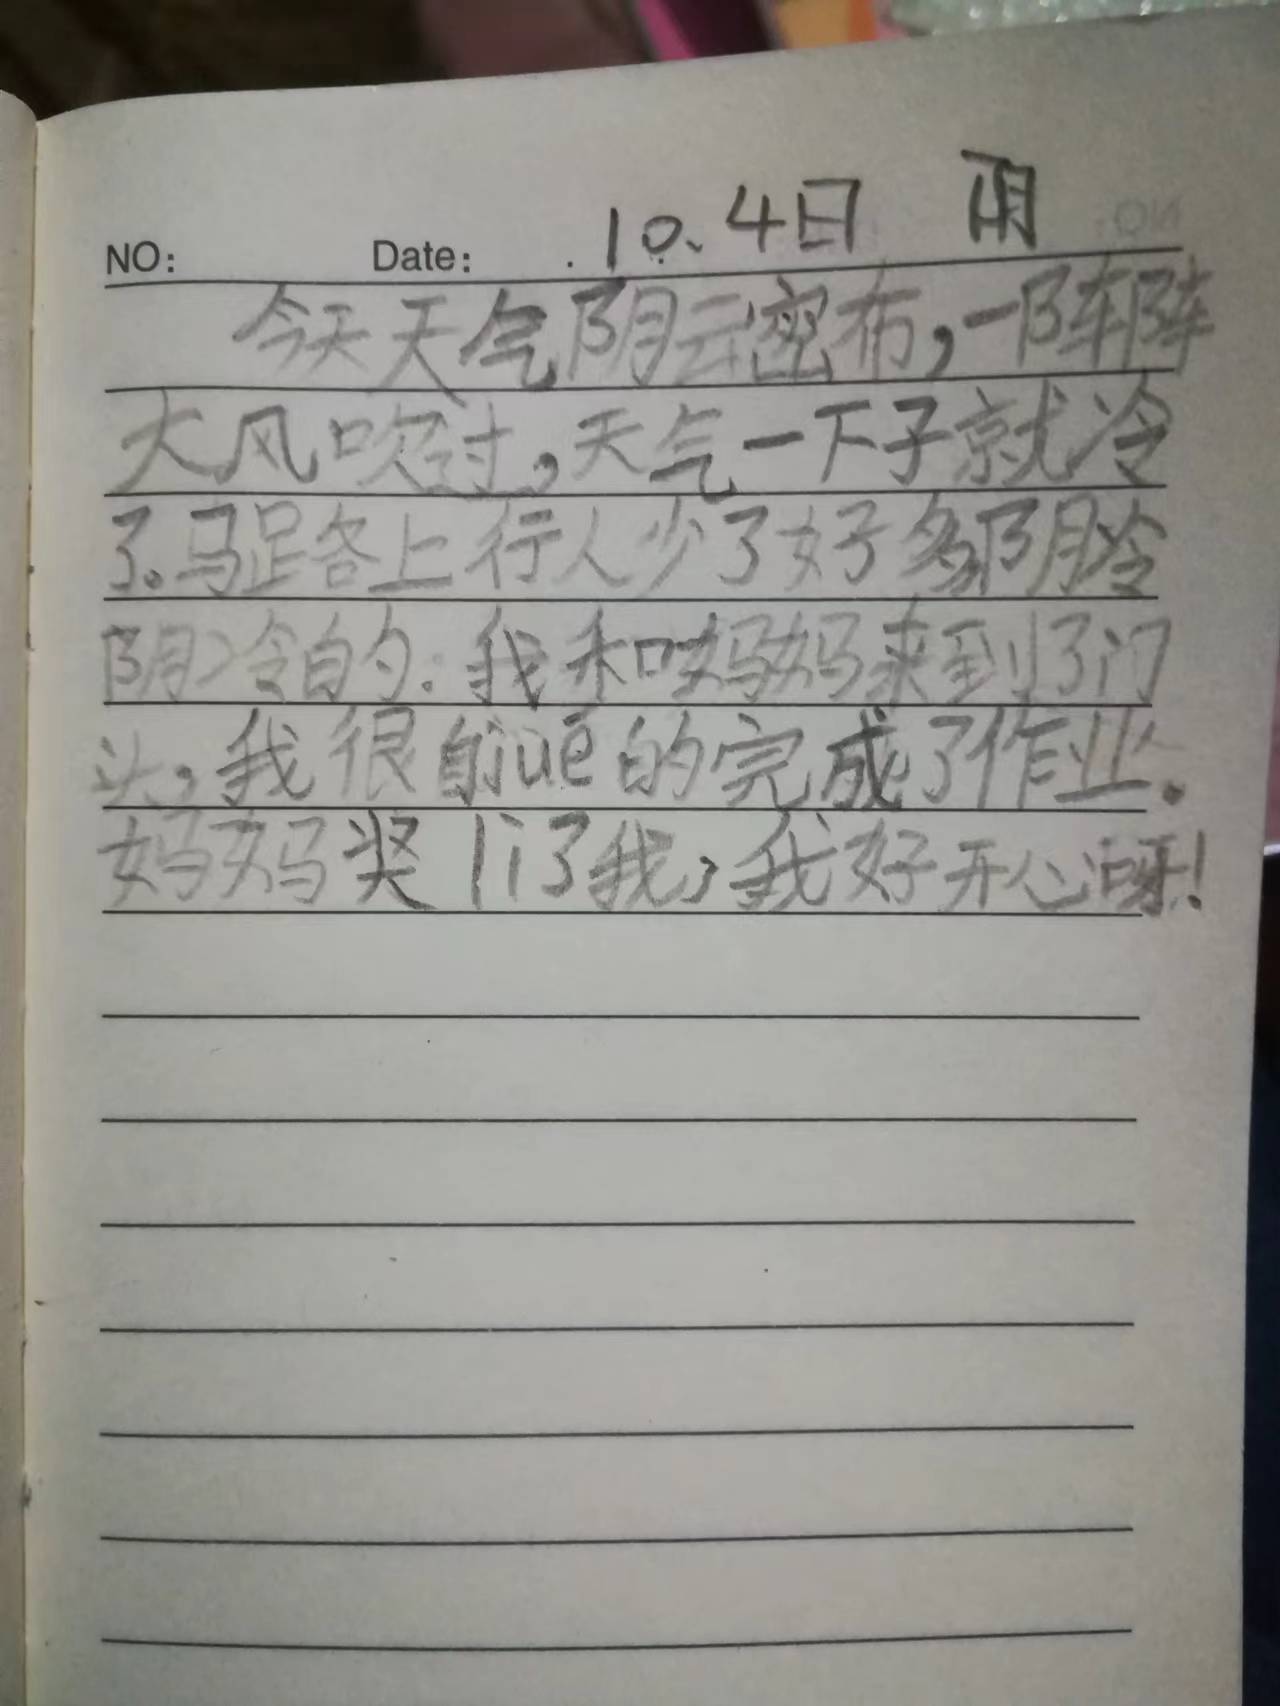 NO: Date: 10.4日 阴
今天天气阴云密布，一阵阵
大风吹过，天气一下子就冷
了。马路上行人少了好多阴冷
阴冷的：我和妈妈来到了门
头，我很自jué的完成了作业。
妈妈奖lì了我，我好开心呀！